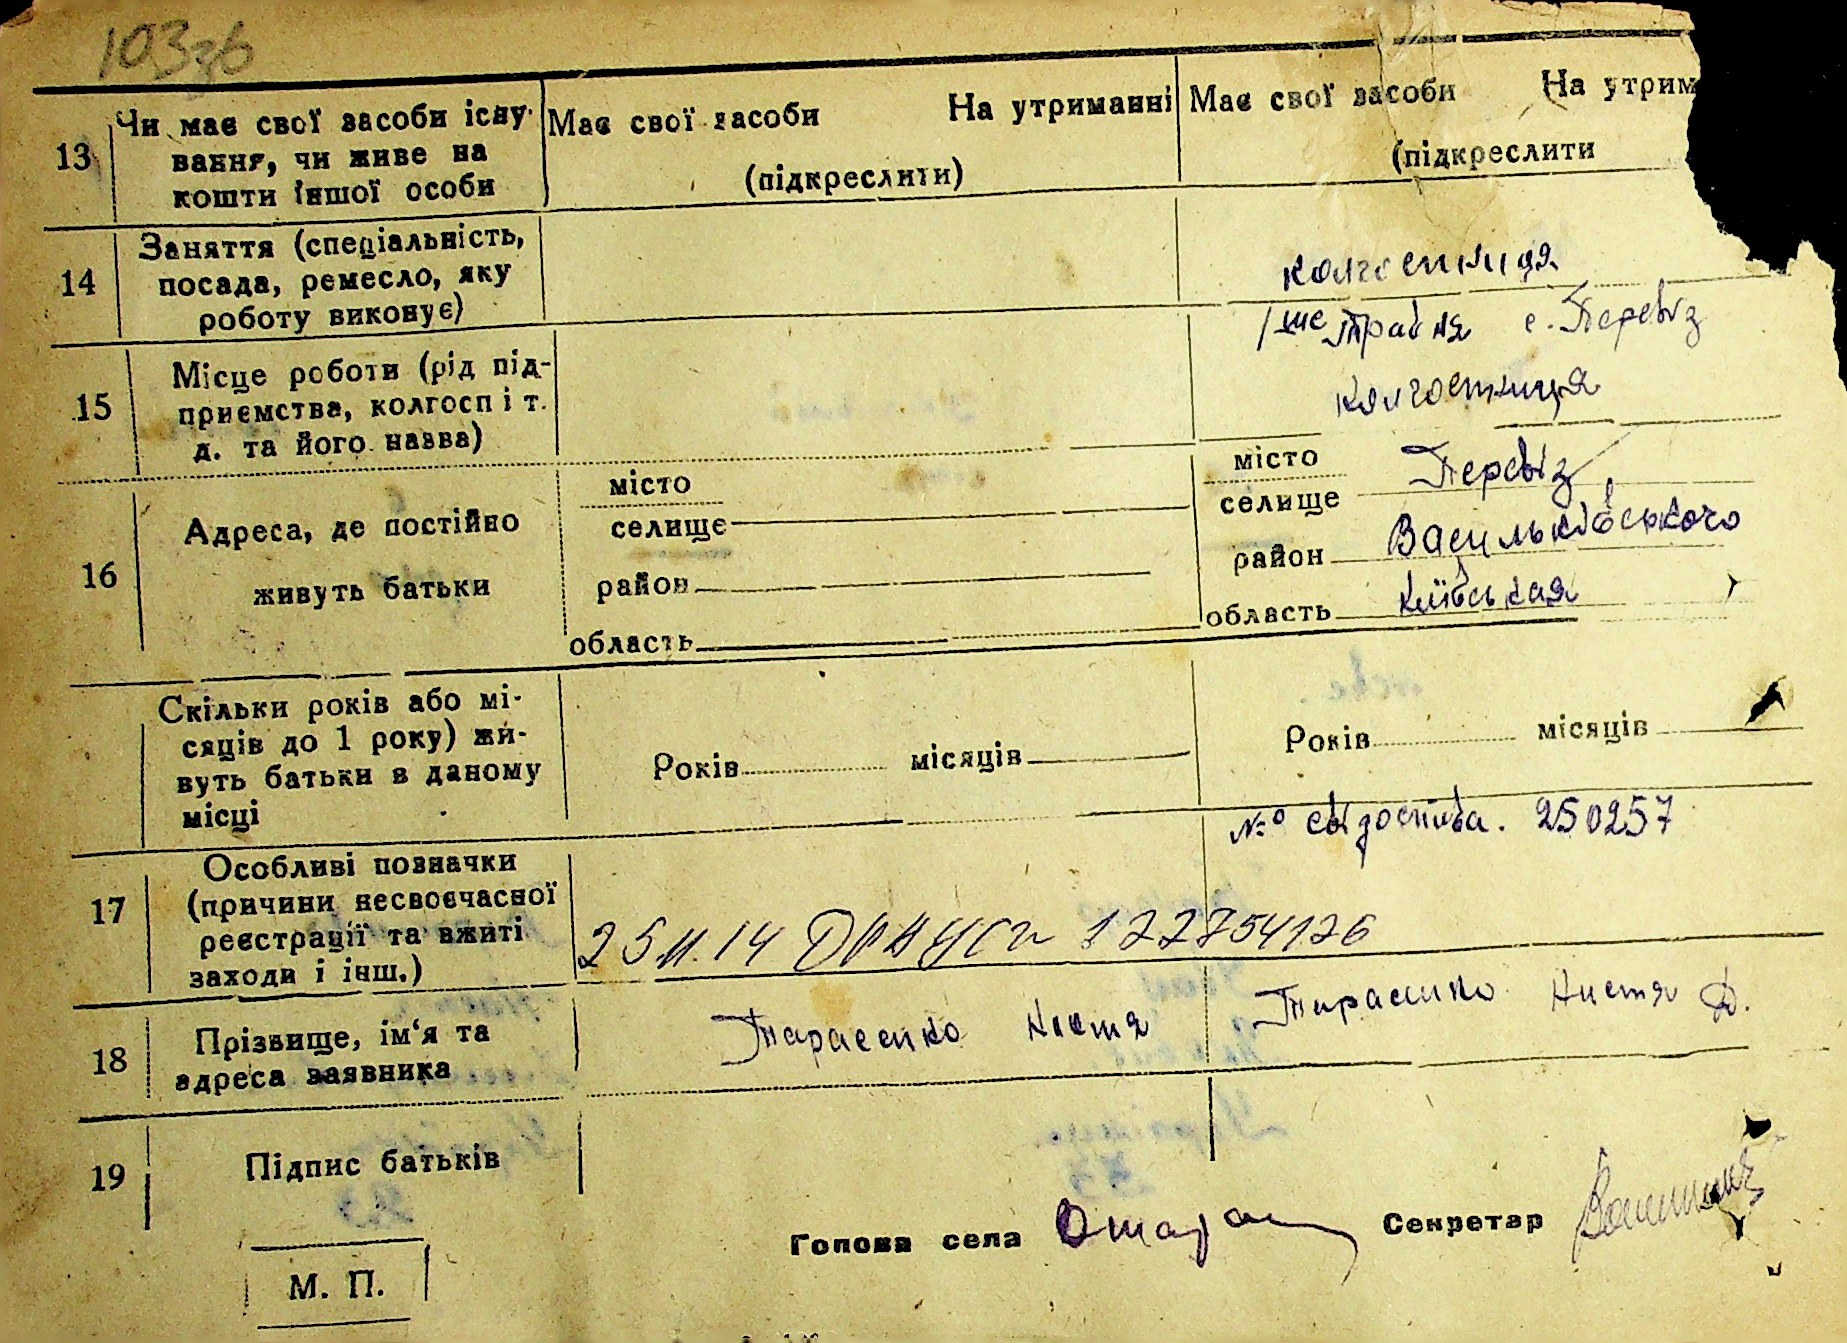 103зв
13 Чи має свої засоби існу- Має свої засоби На утриманні Має свої засоби На утрим
вання, чи живе на (підкреслити) (підкреслити
кошти іншої особи
14 Заняття (спеціальність,
посада, ремесло, яку колгоспниця
роботу виконує)
1ше Травня с. Перевіз
15 Місце роботи (рід під-
приємства, колгосп і т. колгоспниця
д. та його назва)
16 Адреса, де постійно
живуть батьки
місто місто
селище селище Перевіз
район район Васильківського
область область Київская
Скільки років або мі-
сяців до 1 року) жи-
вуть батьки в даному Років місяців Років місяців
місці
№ свідоства. 250257
17 Особливі позначки
(причини несвоєчасної
реєстрації та вжиті
заходи і інш.)
25.11.14 ДРАЦСГ 122754126
18 Прізвище, ім‘я та Тарасенко Настя Тарасенко Настя Д.
адреса заявника
19 Підпис батьків
Голова села Секретар
М. П.